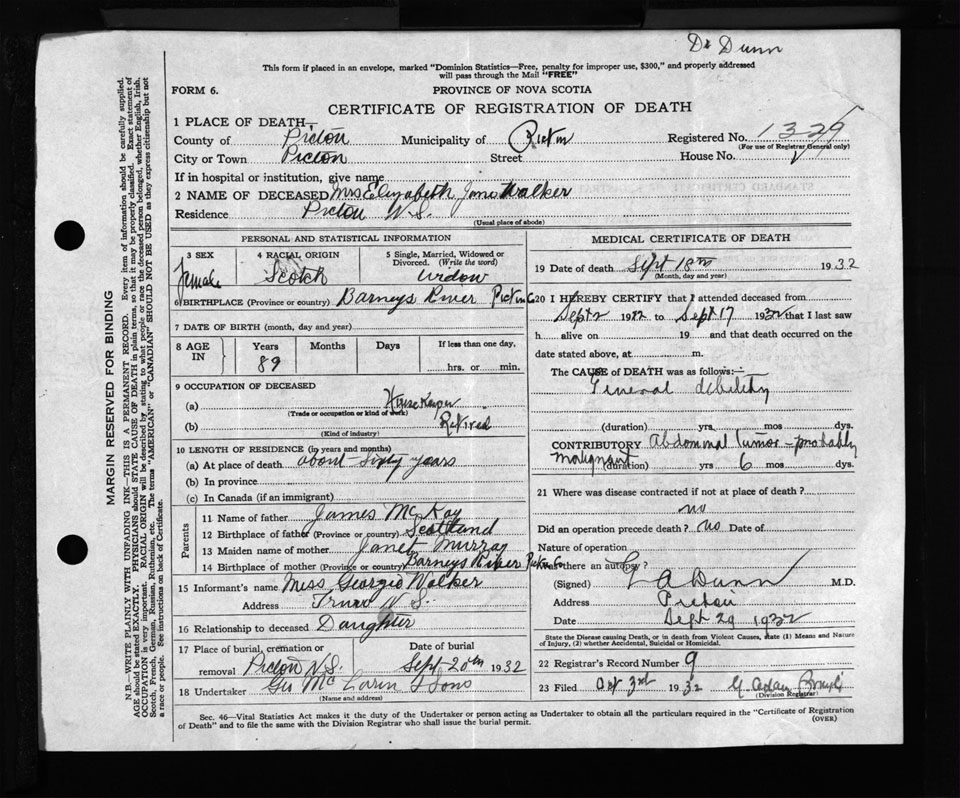 Dr Dunn
This form if placed in an envelope, marked "Dominion Statistics—Free, penalty for improper use, $300," and properly addressed
will pass through the Mail "FREE"
FORM 6.
PROVINCE OF NOVA SCOTIA
CERTIFICATE OF REGISTRATION OF DEATH
1 PLACE OF DEATH—
County of Pictou Municipality of Pictou Registered No. 1329
(For use of Registrar General only)
City or Town Pictou Street House No.
If in hospital or institution, give name
2 NAME OF DECEASED Mrs Elizabeth Jane Walker
Residence Pictou N.S.
(Usual place of abode)
PERSONAL AND STATISTICAL INFORMATION
3 SEX
Female
4 RACIAL ORIGIN
Scotch
5 Single, Married, Widowed or
Divorced. (Write the word)
Widow
6 BIRTHPLACE (Province or country) Barneys River Pictou Co
7 DATE OF BIRTH (month, day and year)
8 AGE IN
Years
89
Months
Days
If less than one day,
hrs. or min.
9 OCCUPATION OF DECEASED
(a) House Keeper
(Trade or occupation or kind of work)
(b) Retired
(Kind of industry)
10 LENGTH OF RESIDENCE (in years and months)
(a) At place of death about sixty years
(b) In province
(c) In Canada (if an immigrant)
Parents
11 Name of father James McKay
12 Birthplace of father (Province or country) Scotland
13 Maiden name of mother Janet Murray
14 Birthplace of mother (Province or country) Barneys River Pictou Co
15 Informant's name Miss Georgie Walker
Address Truro N.S.
16 Relationship to deceased Daughter
17 Place of burial, cremation or
removal Pictou N.S.
Date of burial
Sept 20th 1932
18 Undertaker
(Name and address)
MEDICAL CERTIFICATE OF DEATH
19 Date of death Sept 18th 1932
(Month, day and year)
20 I HEREBY CERTIFY that I attended deceased from
Sept 2 1932 to Sept 17 1932 that I last saw
h alive on 19 and that death occurred on the
date stated above, at m.
The CAUSE of DEATH was as follows:—
General debility
(duration) yrs. mos dys.
CONTRIBUTORY Abdominal tumor – probably
malignant (duration) yrs 6 mos. dys.
21 Where was disease contracted if not at place of death?
no
Did an operation precede death? no Date of
Nature of operation
Was there an autopsy?
(Signed) G A Dunn M.D.
Address Pictou
Date Sept 29 1932
State the Disease causing Death, or in death from Violent Causes, state (1) Means and Nature
of Injury, (2) whether Accidental, Suicidal or Homicidal.
22 Registrar's Record Number 9
23 Filed Oct 3rd 1932
(Division Registrar)
Sec. 46—Vital Statistics Act makes it the duty of the Undertaker or person acting as Undertaker to obtain all the particulars required in the "Certificate of Registration
of Death" and to file the same with the Division Registrar who shall issue the burial permit.
(OVER)
MARGIN RESERVED FOR BINDING
N.B.—WRITE PLAINLY WITH UNFADING INK—THIS IS A PERMANENT RECORD. Every item of information should be carefully supplied.
AGE should be stated EXACTLY. PHYSICIANS should STATE CAUSE OF DEATH in plain terms, so that it may be properly classified. Exact statement of
OCCUPATION is very important. RACIAL ORIGIN will be described by stating to what people or race the deceased person belonged, whether English, Irish,
Scotch, French, German, Russian, Ruthenian, etc. The terms "AMERICAN" or "CANADIAN" SHOULD NOT BE USED as they express citizenship but not
a race or people. See instructions on back of Certificate.